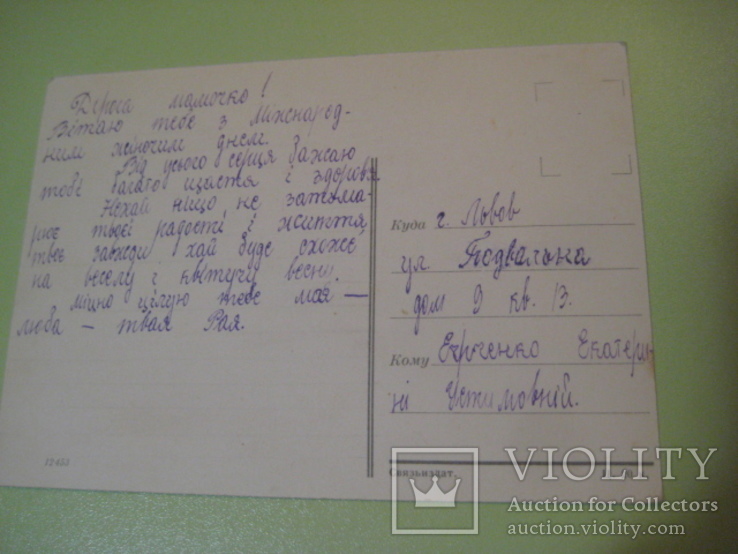 Дорога мамочко!
Вітаю тебе з Міжнарод-
ним жіночим днем.
Від усього серця бажаю
тобі багато щастя і здоровя
Нехай ніщо не затьма-
рює твоєї радості і життя
твоє завжди хай буде схоже
на веселу і квітучу весну.
Міцно цілую тебе моя —
люба — твоя Рая.
12453
Куда г. Львов
ул Подвальна
дом 9 кв. 13.
Кому Екатери-
ні Устимовній.
Связьиздат.
VIOLITY
Auction for Collectors
auction.violity.com